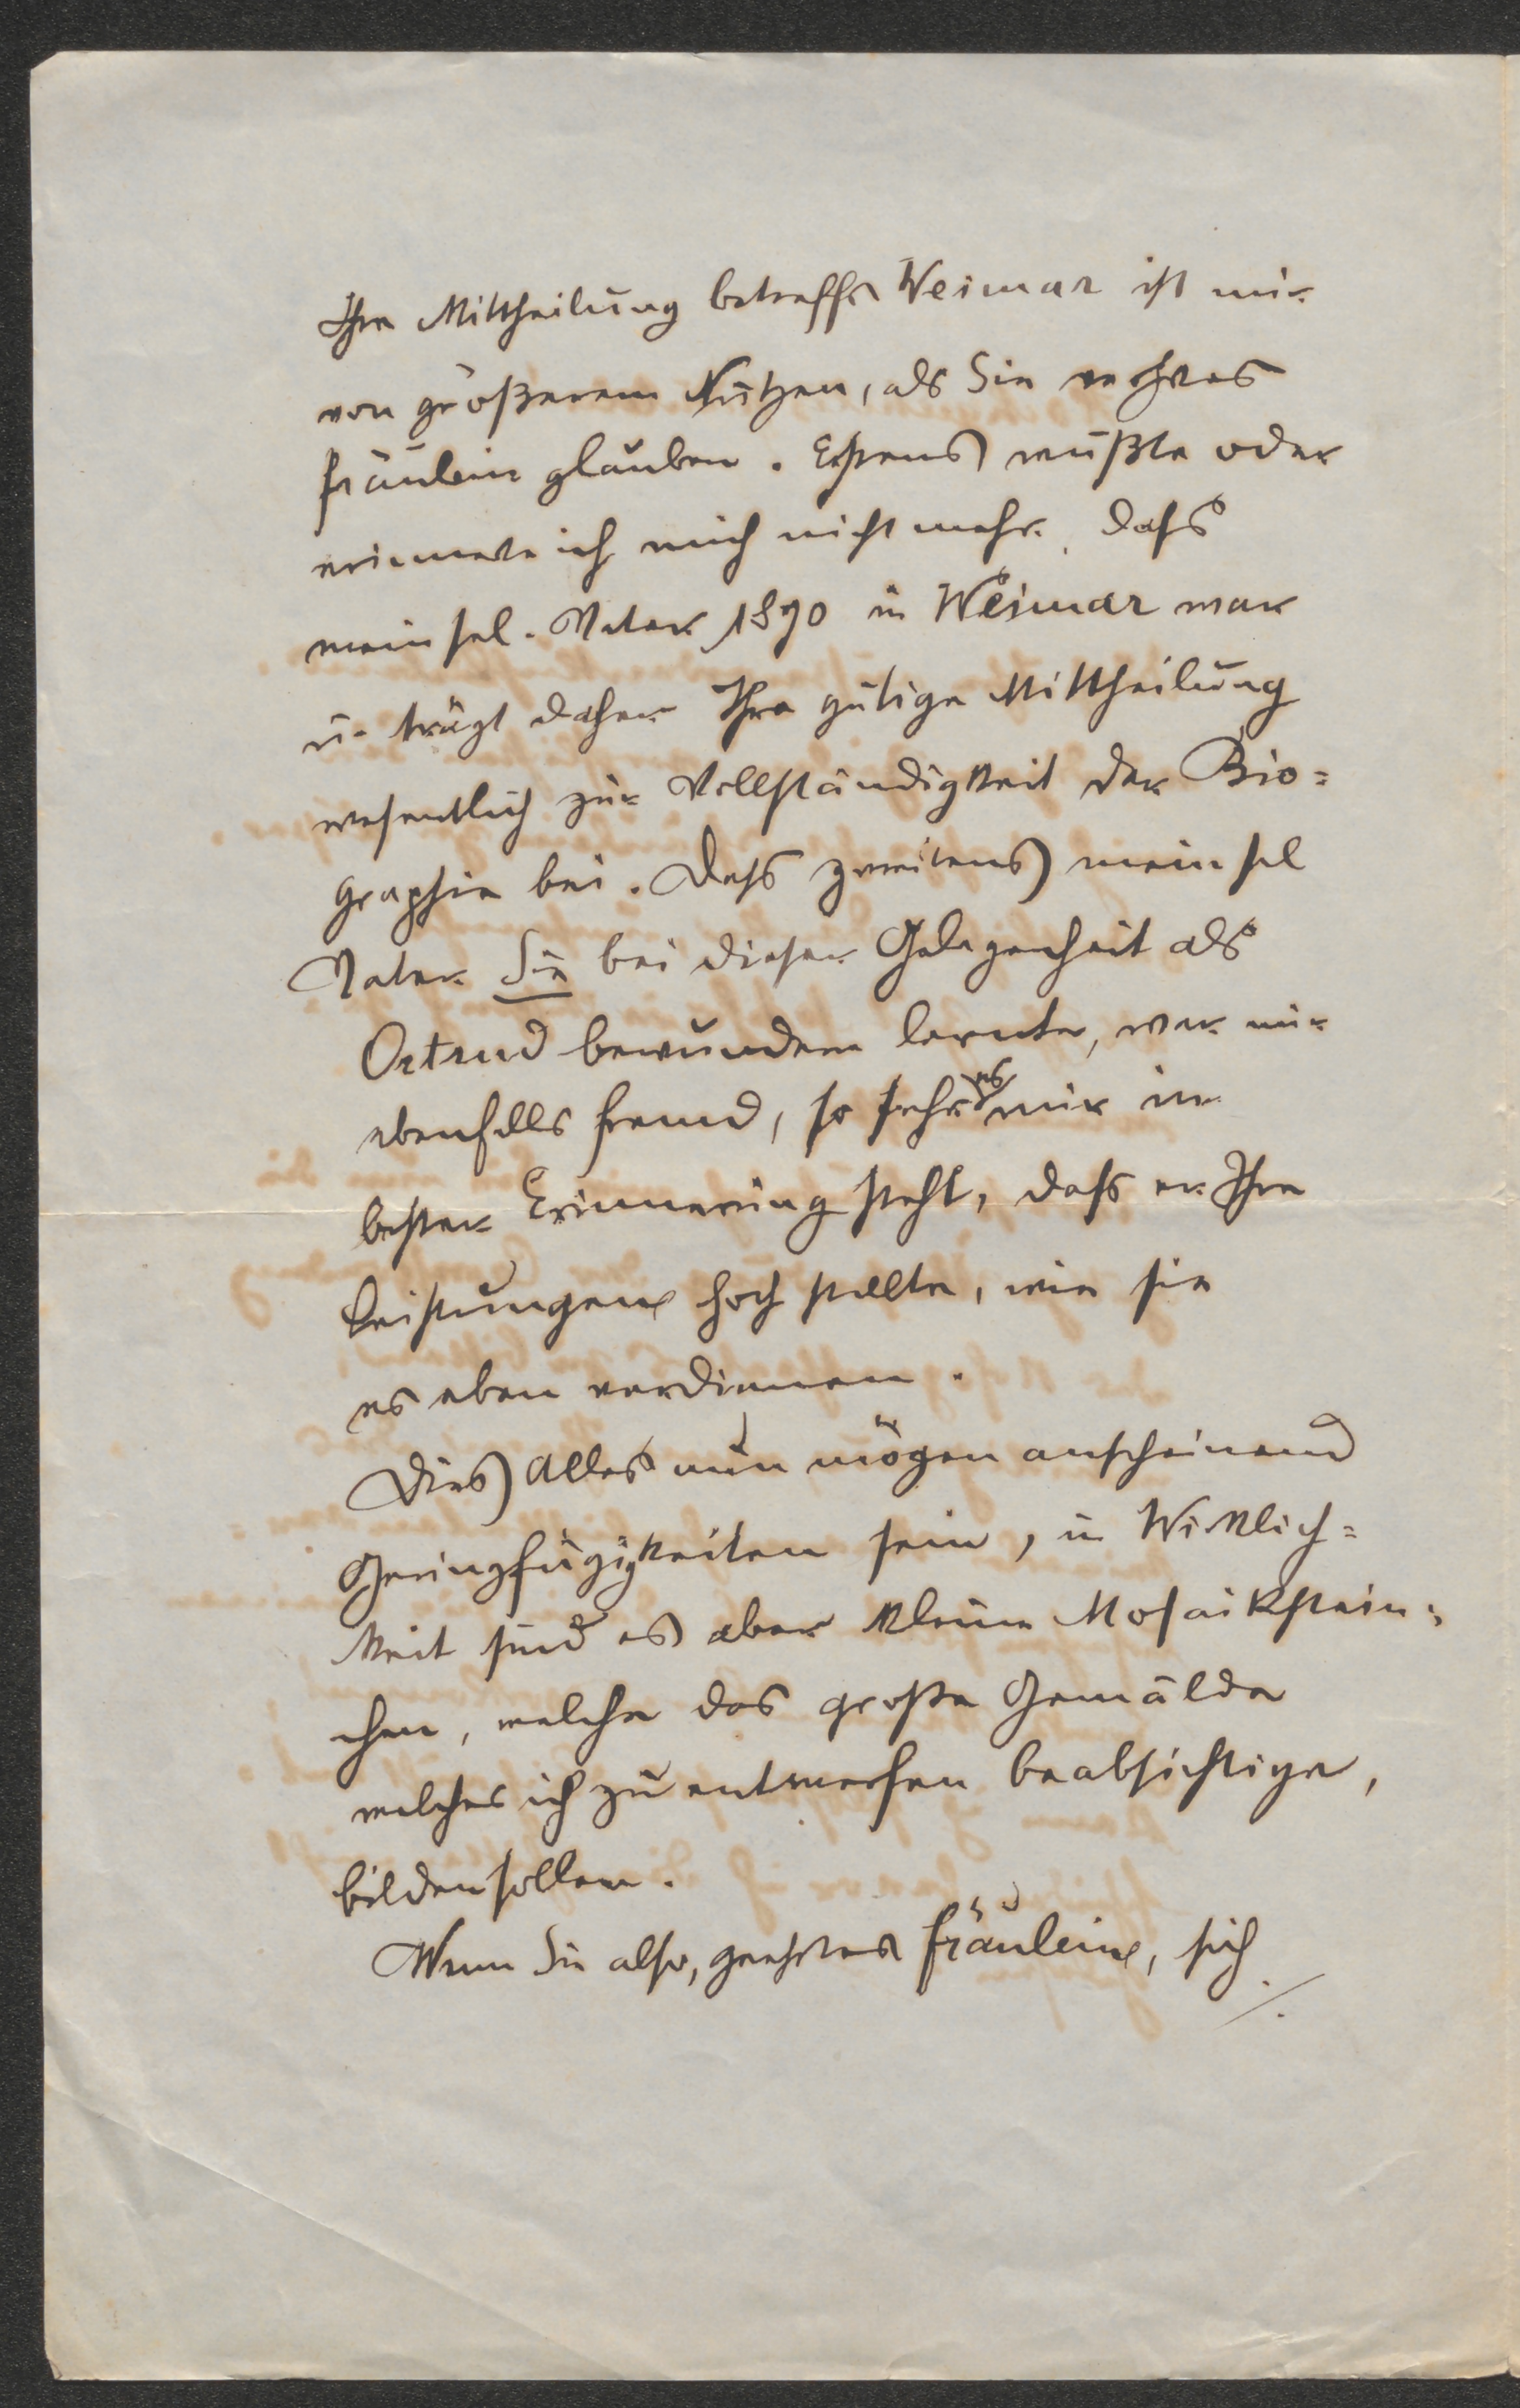 Ihre Mittheilung betreffs Weimar ist mir
von größerem Nutzen, als Sie verehrtes
Fräulein glauben. Erstens wußte oder
erinnerte ich mich nicht mehr, dass
mein sel. Vater 1870 in Weimar war
u. trägt daher Ihre gütige Mittheilung
wesentlich zur Vollständigkeit der Bio=
graphie bei. Dass zweitens mein sel
Vater Sie bei dieser Gelegenheit als
Ortrud bewundern lernte, war mir
ebenfalls fremd, so sehr es mir in
bester Erinnerung steht, dass er Ihre
Leistungen hoch stellte, wie sie
es eben verdienen.
Dies Alles nun mögen anscheinend
Geringfügigkeiten sein, in Wirklich=
keit sind es aber kleine Mosaikstein=
chen, welche das große Gemälde
welches ich zu entwerfen beabsichtige,
bilden sollen.
Wenn Sie also, geehrtes Fräulein, sich
./.